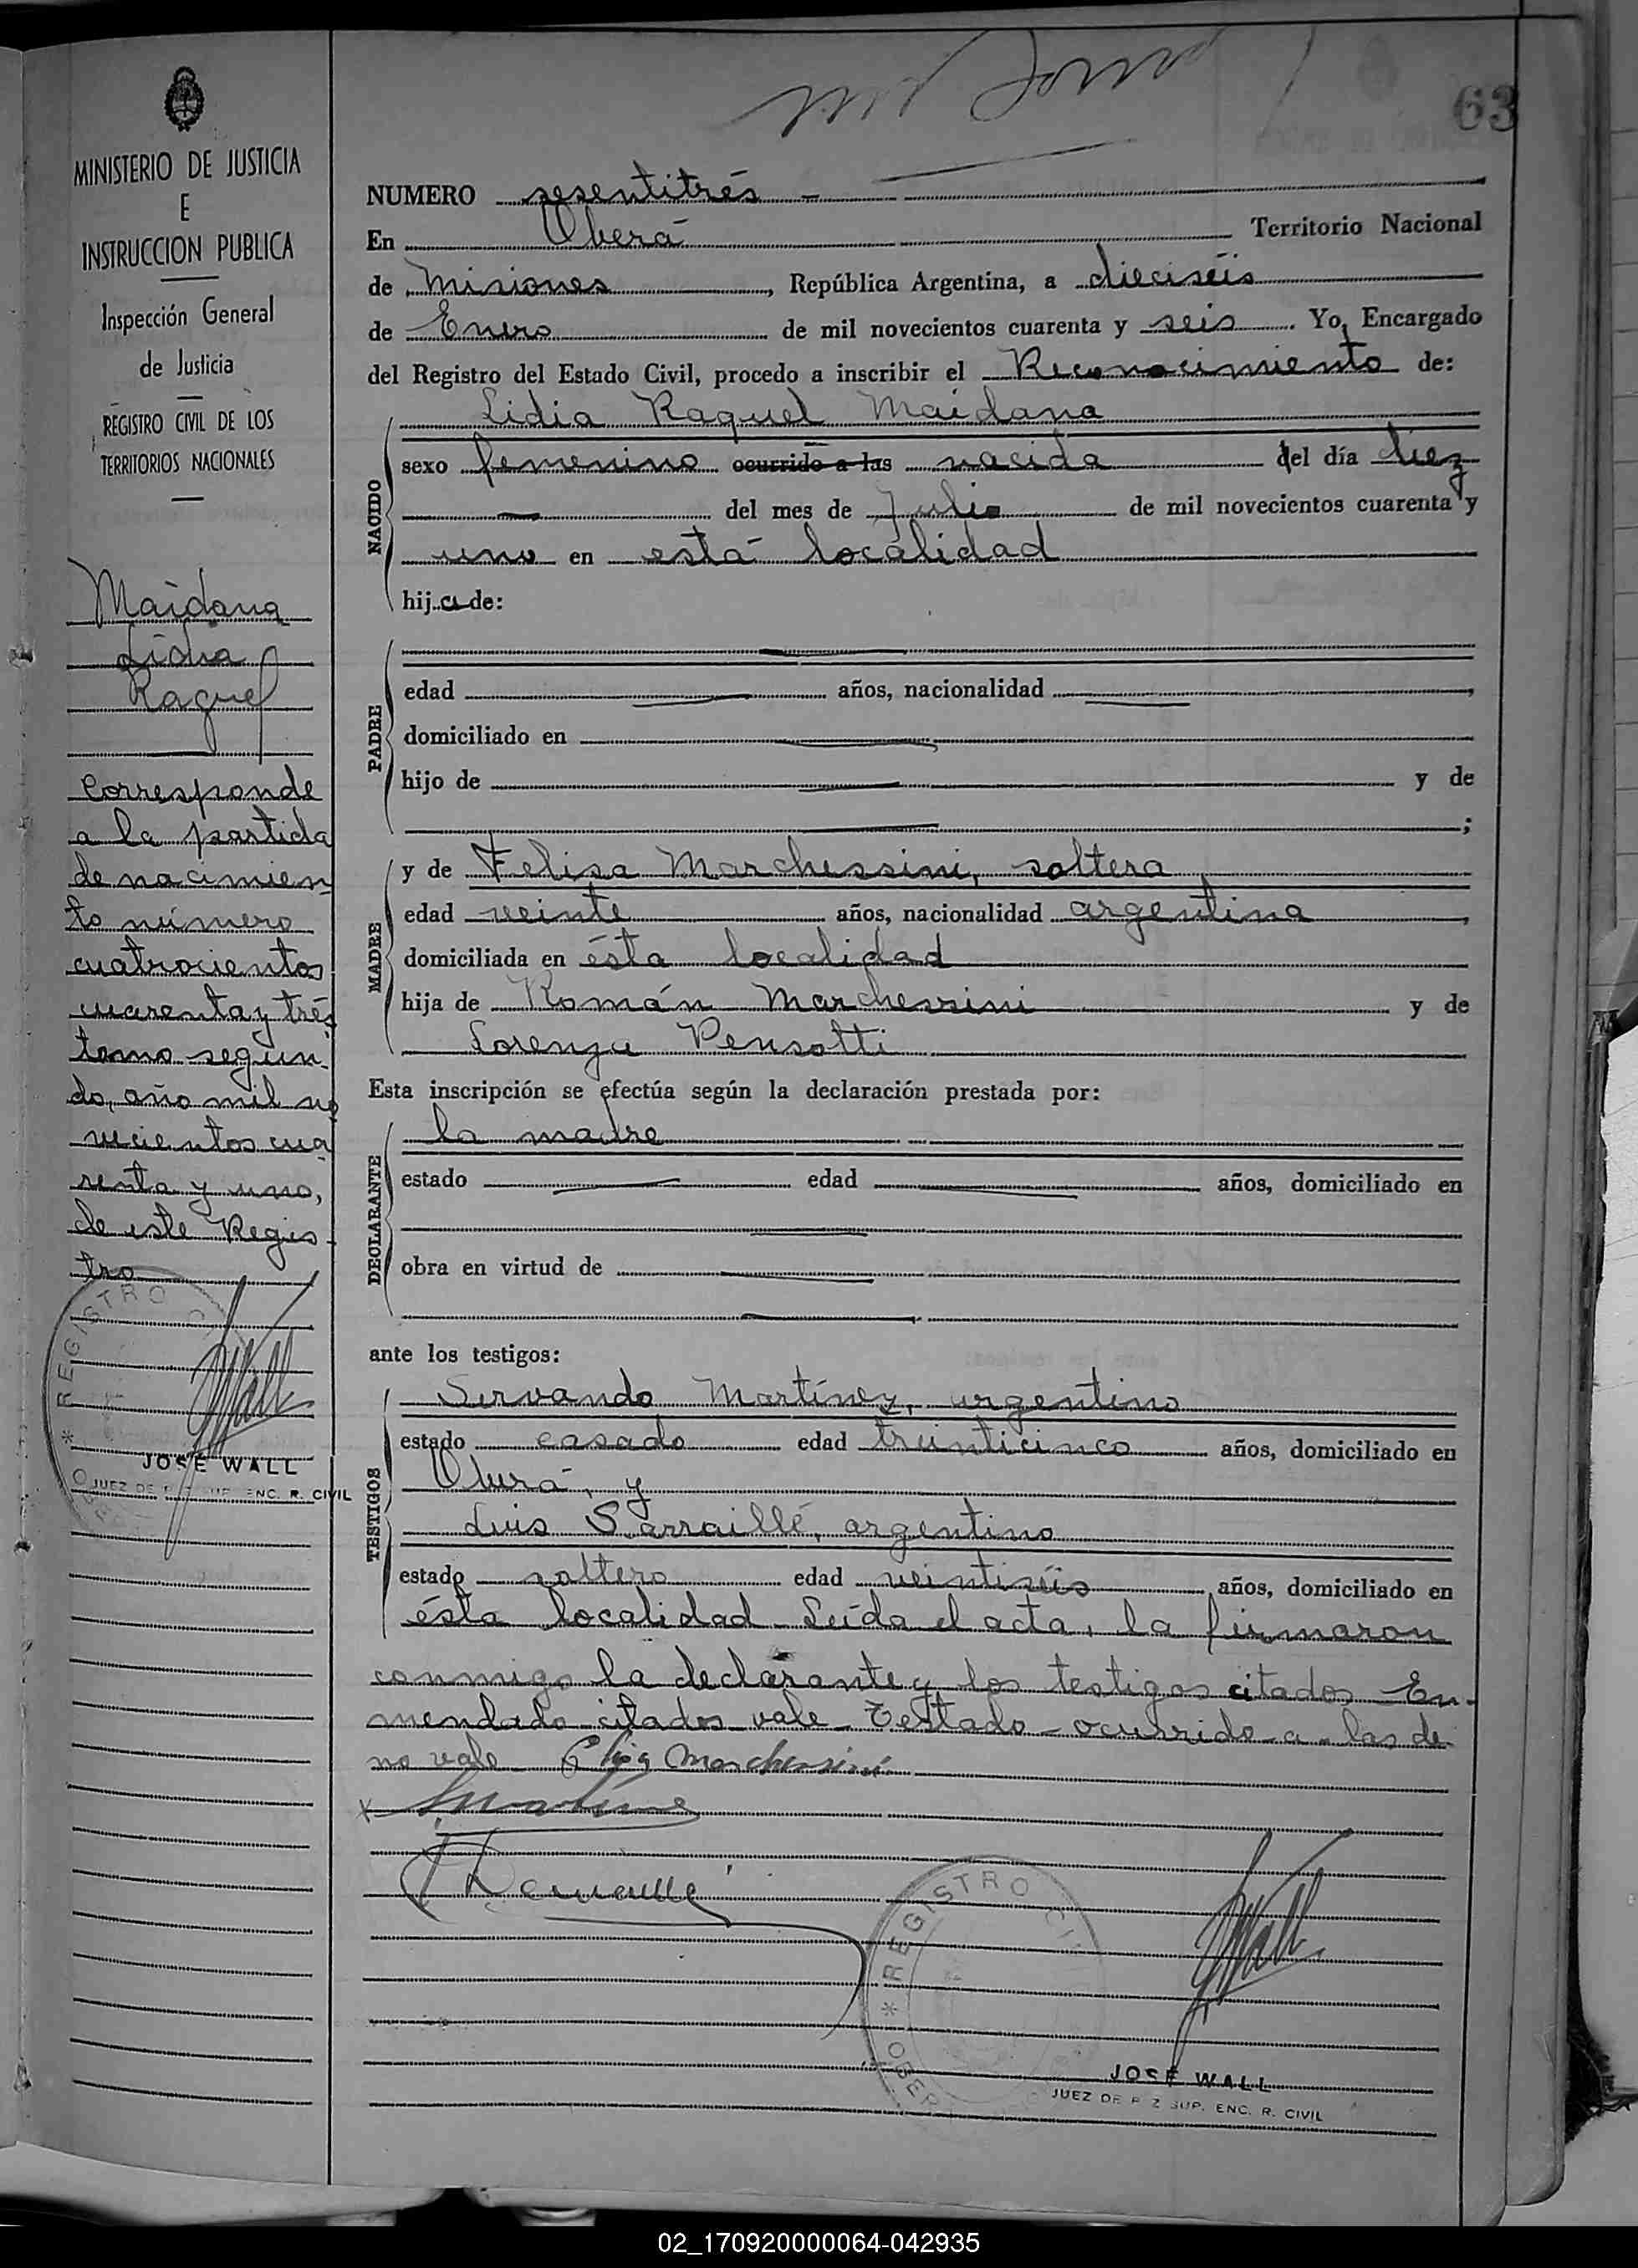 63
MINISTERIO DE JUSTICIA
E
INSTRUCCION PUBLICA
Inspección General
de Justicia
REGISTRO CIVIL DE LOS
TERRITORIOS NACIONALES
Maidana
Lidia
Raquel
Corresponde
a la partida
de nacimien
to número
cuatrocientos
cuarenta y trés
tomo segun-
do, año mil no
vecientos cua
renta y uno,
de este Regis-
tro
REGISTRO CI
JOSÉ WALL
JUEZ DE P Z SUP. ENC. R. CIVIL
NUMERO sesentitrés -
En Oberá Territorio Nacional
de Misiones, República Argentina, a dieciséis
de Enero de mil novecientos cuarenta y seis. Yo, Encargado
del Registro del Estado Civil, procedo a inscribir el Reconocimiento de:
NACIDO
Lidia Raquel Maidana
sexo femenino ocurrido a las nacida del día diez
del mes de Julio de mil novecientos cuarenta y
uno en está localidad
hija de:
PADRE
edad años, nacionalidad
domiciliado en
hijo de y de
;
MADRE
y de Felisa Marchessini, soltera
edad veinte años, nacionalidad argentina,
domiciliada en ésta localidad
hija de Román Marchessini y de
Lorenza Pensotti
Esta inscripción se efectúa según la declaración prestada por:
DECLARANTE
la madre
estado edad años, domiciliado en
obra en virtud de
ante los testigos:
TESTIGOS
Servando Martínez, argentino
estado casado edad treinticinco años, domiciliado en
Oberá, y
Luis Sarraillé, argentino
estado soltero edad veintiséis años, domiciliado en
ésta localidad. Leída el acta, la firmaron
conmigo la declarante y los testigos citados. En-
mendado-citados-vale-Testado-ocurrido-a-las-de-
no vale Marchessini
REGISTRO CI
OBER
JOSÉ WALL
JUEZ DE P Z SUP. ENC. R. CIVIL
02_170920000064-042935